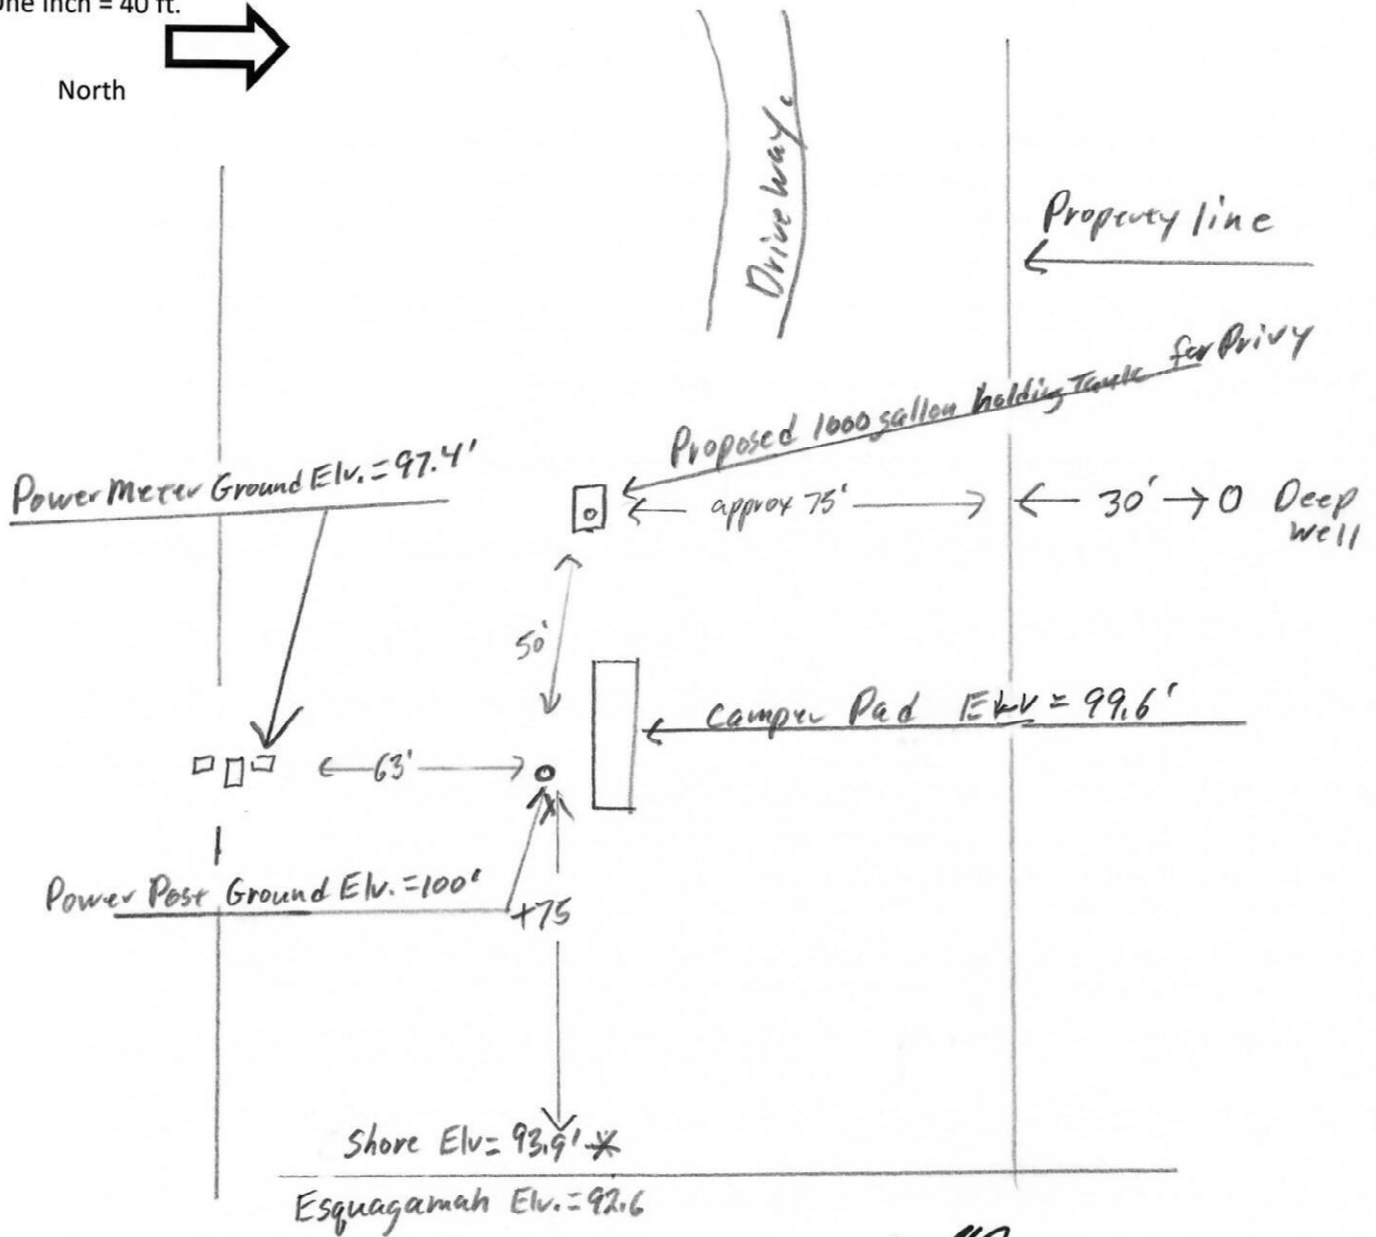 One inch = 40 ft.
North
Driveway
Property line
Proposed 1000 gallon holding Tank for Privy
Power Meter Ground Elv. = 97.4'
approx 75'
30'
Deep
well
50'
Camper Pad Elv = 99.6'
63'
Power Post Ground Elv. = 100'
+75
Shore Elv = 93.9'
Esquagamah Elv. = 92.6